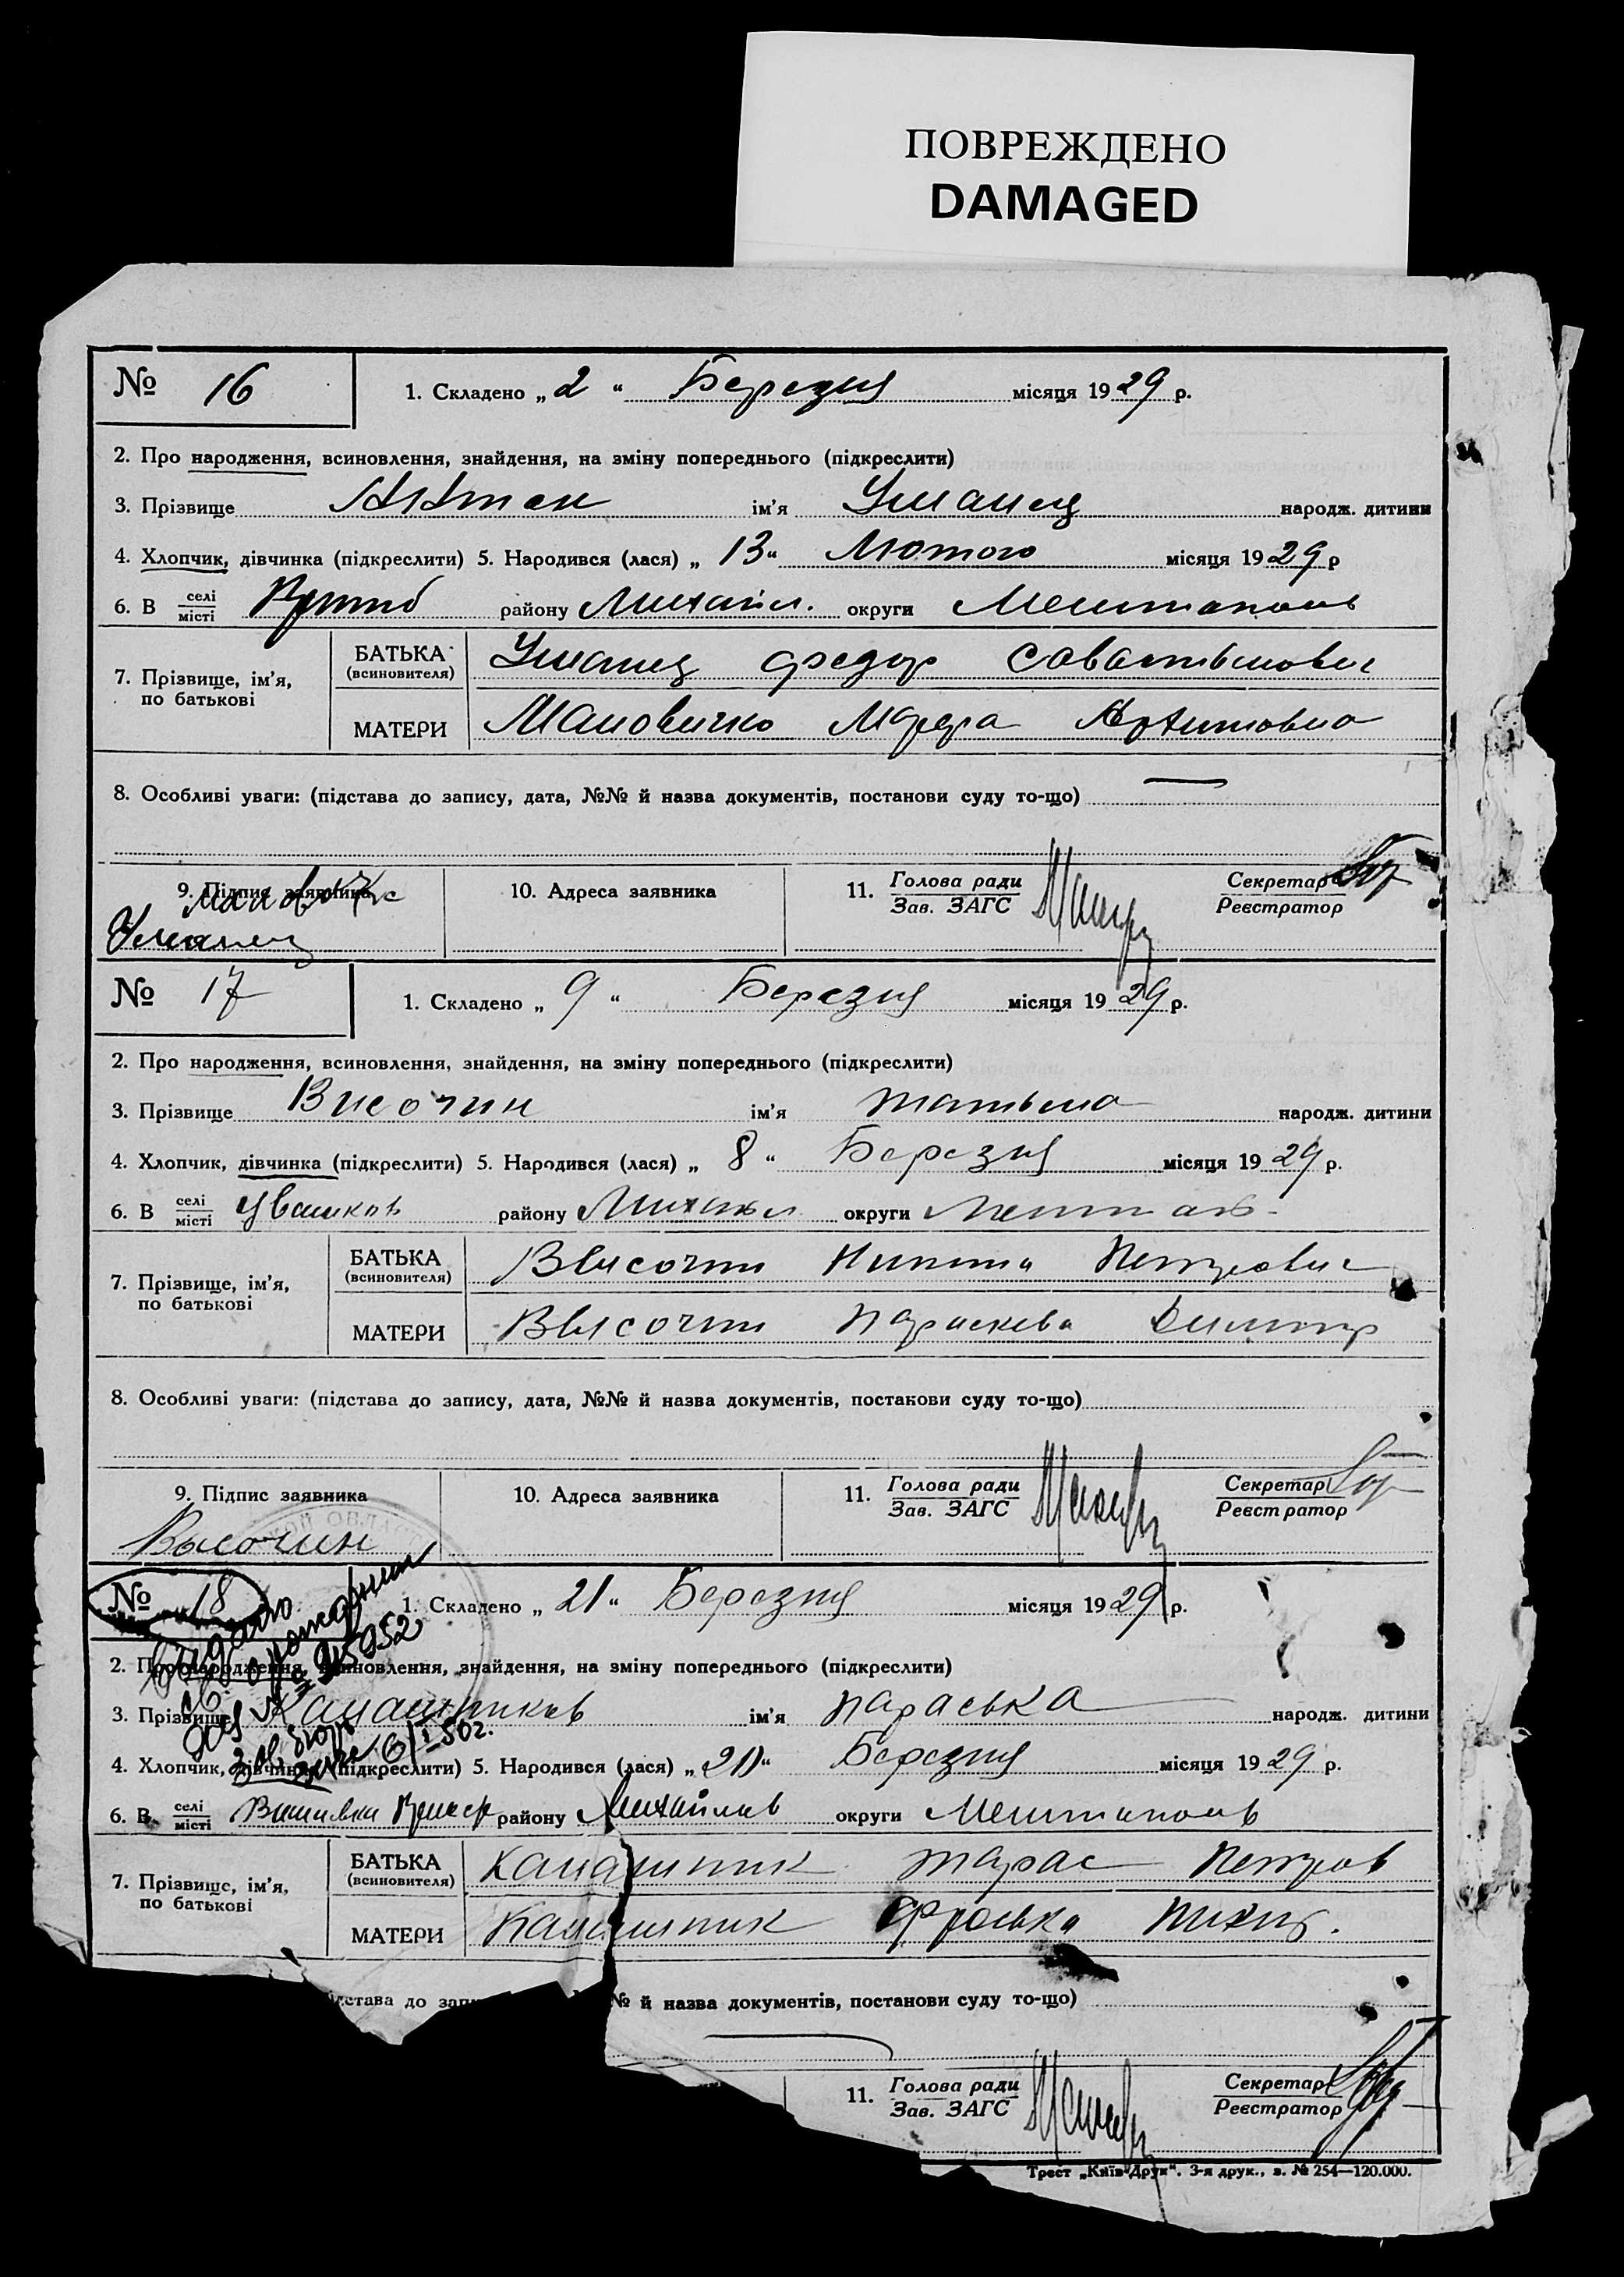 ПОВРЕЖДЕНО
DAMAGED
№ 16 1. Складено „ 2 “ Березня місяця 1929 р.
2. Про народження, всиновлення, знайдення, на зміну попереднього (підкреслити)
3. Прізвище ім'я Уманец народж. дитини
4. Хлопчик, дівчинка (підкреслити) 5. Народився (лася) „ 13 “ Лютого місяця 1929 р
6. В селі/місті району Михайл. округи Мелитополь
7. Прізвище, ім'я, по батькові
БАТЬКА (всиновителя) Уманец Федор
МАТЕРИ Марфа
8. Особливі уваги: (підстава до запису, дата, №№ й назва документів, постанови суду то-що)
9. Підпис заявника 10. Адреса заявника 11. Голова ради/Зав. ЗАГС Секретар/Реєстратор
Уманец
№ 17 1. Складено „ 9 “ Березня місяця 1929 р.
2. Про народження, всиновлення, знайдення, на зміну попереднього (підкреслити)
3. Прізвище Височин ім'я Татьяна народж. дитини
4. Хлопчик, дівчинка (підкреслити) 5. Народився (лася) „ 8 “ Березня місяця 1929 р.
6. В селі/місті району округи
7. Прізвище, ім'я, по батькові
БАТЬКА (всиновителя) Высочин Никита Петрович
МАТЕРИ Высочин Параскева Димитр
8. Особливі уваги: (підстава до запису, дата, №№ й назва документів, постанови суду то-що)
9. Підпис заявника 10. Адреса заявника 11. Голова ради/Зав. ЗАГС Секретар/Реєстратор
Высочин
№ 18 1. Складено „ 21 “ Березня місяця 1929 р.
2. Про народження, всиновлення, знайдення, на зміну попереднього (підкреслити)
3. Прізвище Калашников ім'я Параська народж. дитини
4. Хлопчик, дівчинка (підкреслити) 5. Народився (лася) „ “ Березня місяця 1929 р.
6. В селі/місті району Михайлов округи Мелитополь
7. Прізвище, ім'я, по батькові
БАТЬКА (всиновителя) Калашник Тарас Петров
МАТЕРИ Калашник Фроська
підстава до зап № й назва документів, постанови суду то-що)
11. Голова ради/Зав. ЗАГС Секретар/Реєстратор
Трест „Київ-Друк“. 3-я друк., з. № 254—120.000.